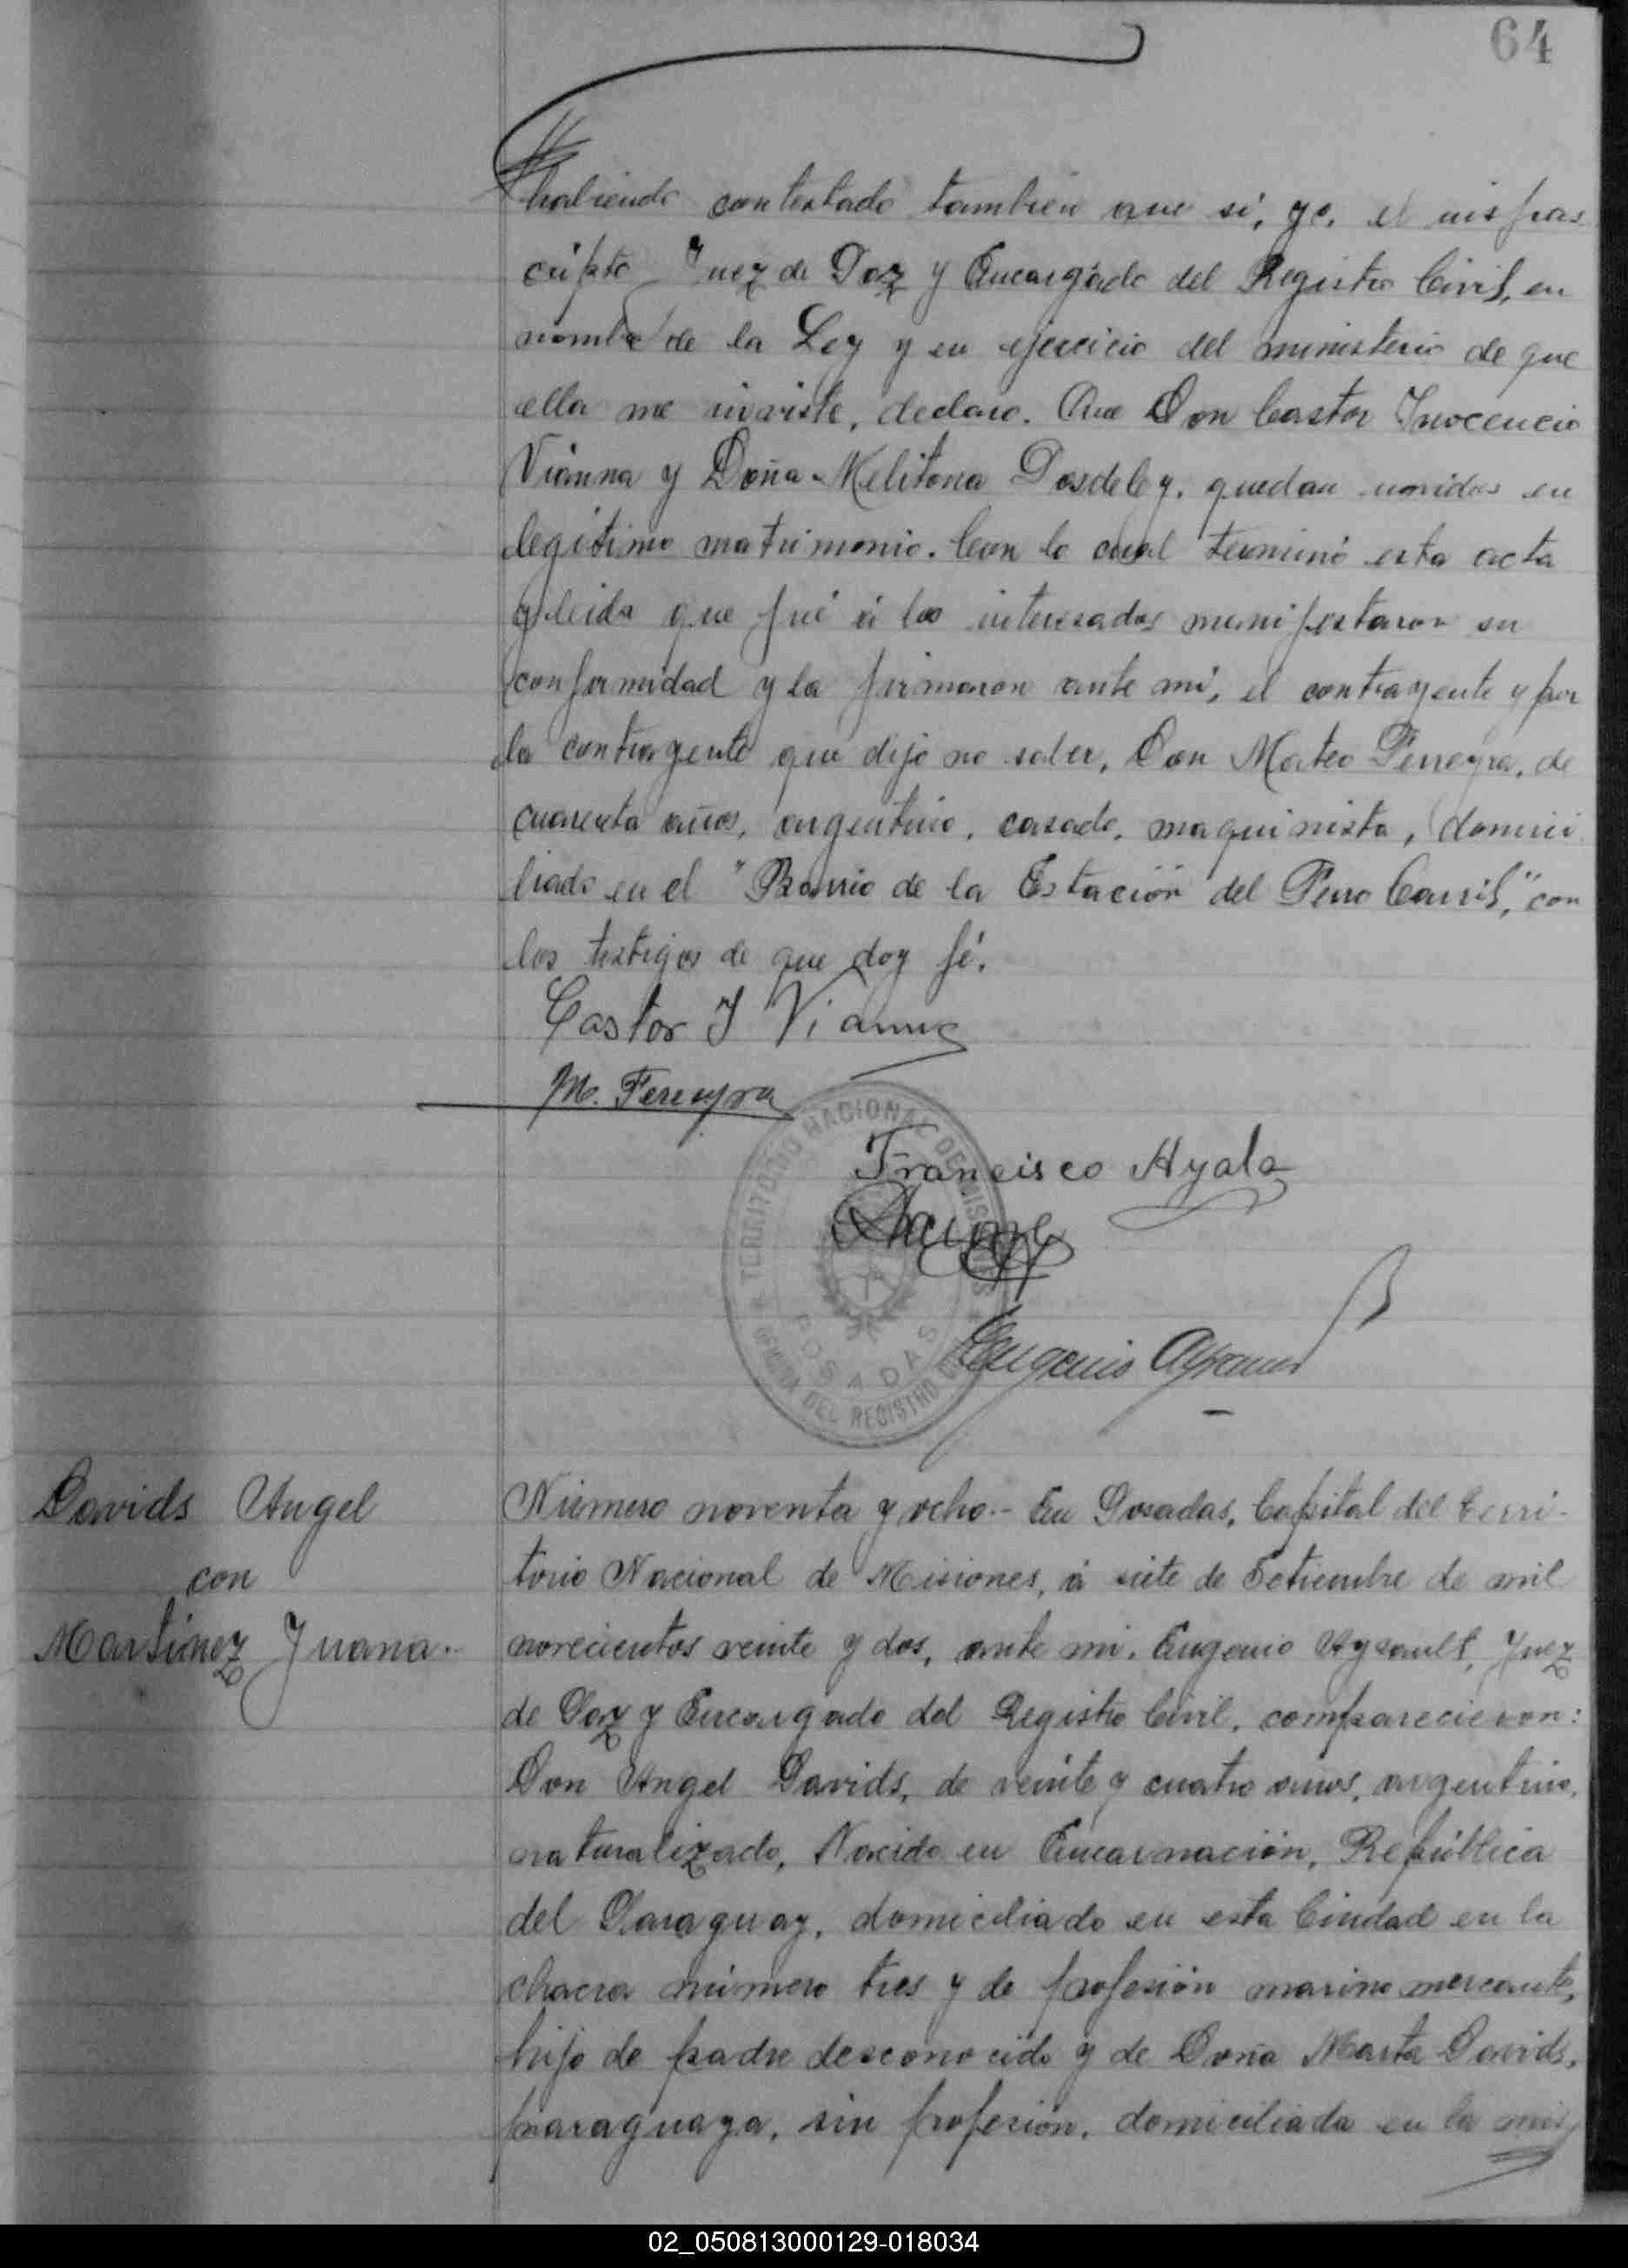 64
habiendo contestado tambien que si, yo, el infras
cripto Juez de Paz y Encargado del Registro Civil, en
nombre de la Ley y en ejercicio del ministerio de que
ella me inviste, declaro. Que Don Castor Inocencio
Vianna y Doña Melitona Posdeley, quedan unidos en
legítimo matrimonio. Con lo cual terminó esta acta
y leida que fué á los interesados manifestaron su
conformidad y la firmaron ante mi, el contrayente y por
la contrayente que dijo no saber, Don Mateo Ferreyra, de
cuarenta años, argentino, casado, maquinista, domici
liado en el "Barrio de la Estación del Ferro Carril," con
los testigos de que doy fé.
Castor I Vianna
M. Fereyra
Francisco Ayala
TERRITORIO NACIONAL DE MISIONES
POSADAS
OFICINA DEL REGISTRO
Eugenio
Davids Angel
con
Martinez Juana.-
Número noventa y ocho.- En Posadas, Capital del Terri-
torio Nacional de Misiones, á siete de Setiembre de mil
novecientos veinte y dos, ante mi, Eugenio Ayrault, Juez
de Paz y Encargado del Registro Civil, comparecieron:
Don Angel Davids, de veinte y cuatro años, argentino,
naturalizado, Nacido en Encarnación, República
del Paraguay, domiciliado en esta Ciudad en la
chacra número tres y de profesión marino mercante,
hijo de padre desconocido y de Doña Marta Davids,
paraguaya, sin profesión, domiciliada en la mis
02_050813000129-018034